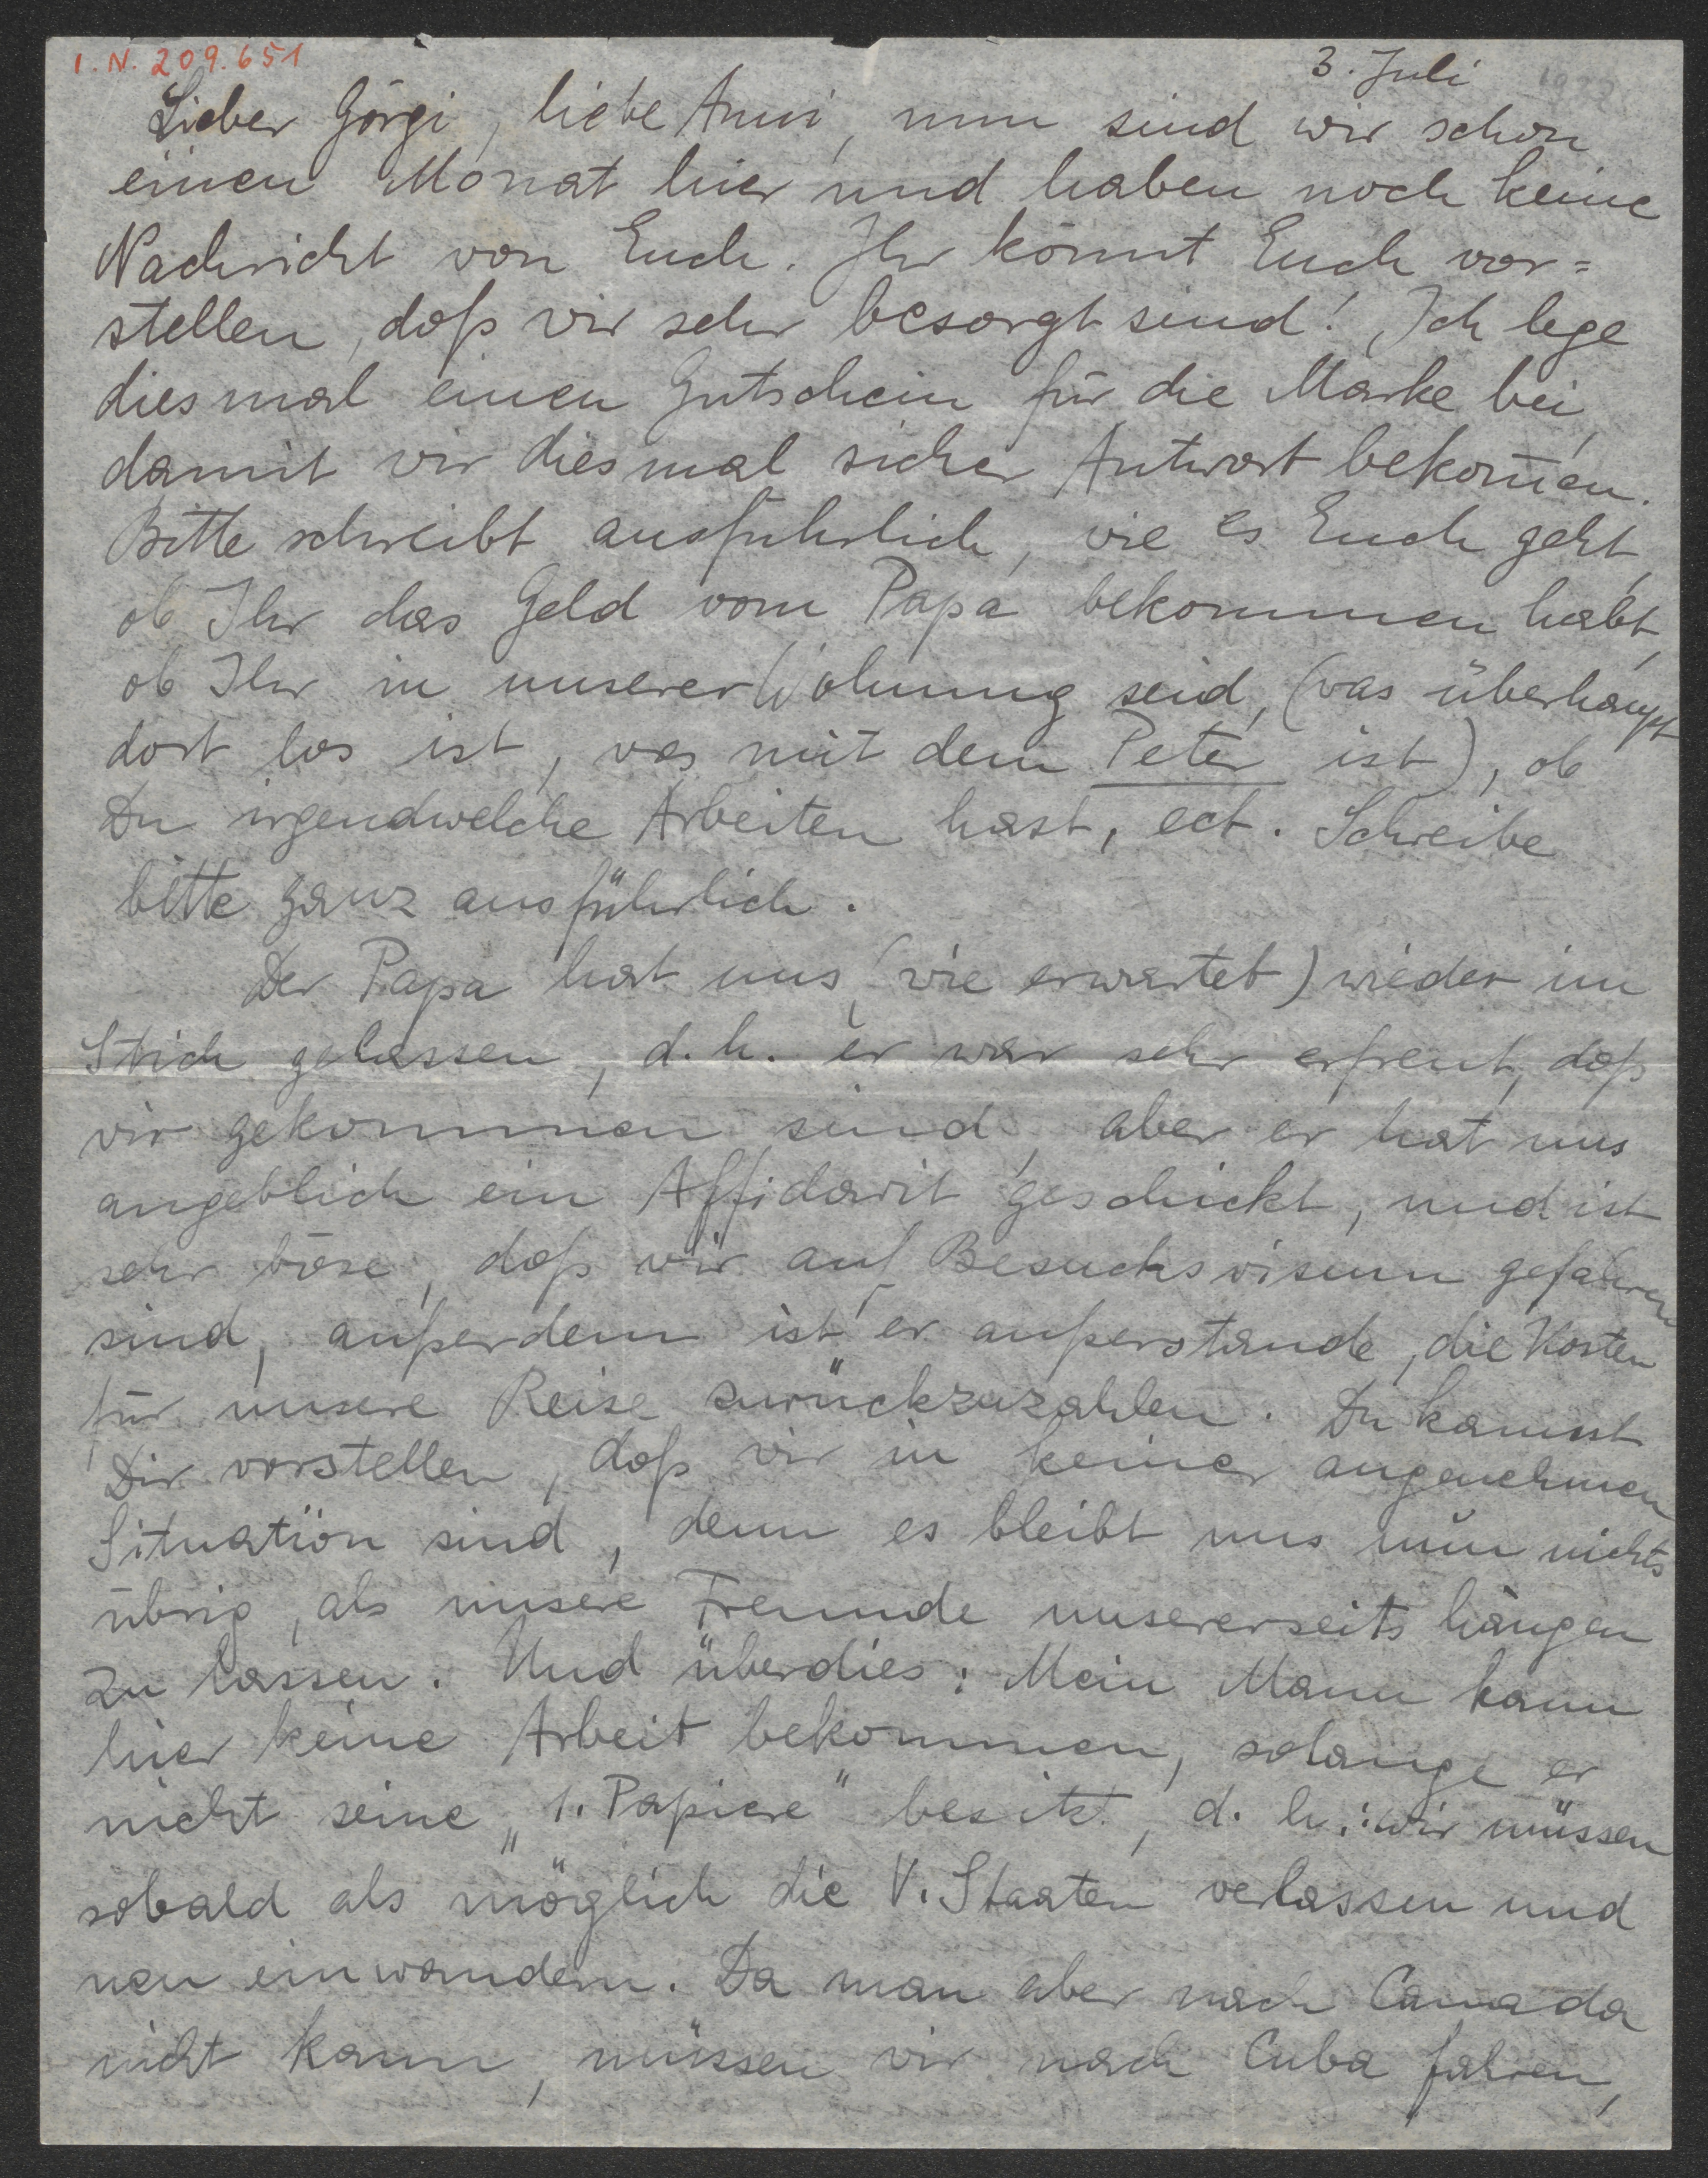 I.N. 209.651
3. Juli
Lieber Görgi, liebe Anni, nun sind wir schon
einen Monat hier und haben noch keine
Nachricht von Euch. Ihr könnt Euch vor=
stellen, daß wir sehr besorgt sind! Ich lege
diesmal einen Gutschein für die Marke bei,
damit wir diesmal sicher Antwort bekom̅en.
Bitte schreibt ausführlich, wie es Euch geht,
ob Ihr das Geld vom Papa bekommen habt,
ob Ihr in unserer Wohnung seid, (was überhaupt
dort los ist, was mit dem Peter ist), ob
Du irgendwelche Arbeiten hast, ect. Schreibe
bitte ganz ausführlich.
Der Papa hat uns (wie erwartet) wieder im
Stich gelassen, d.h. er war sehr erfreut, daß
wir gekommen sind, aber er hat uns
angeblich ein Affidavit geschickt, und ist
sehr böse, daß wir auf Besuchsvisum gefahren
sind, außerdem ist er außerstande, die Kosten
für unsere Reise zurückzuzahlen. Du kannst
Dir vorstellen, daß wir in keiner angenehmen
Situation sind, denn es bleibt uns nun nichts
übrig, als unsere Freunde unsererseits hängen
zu lassen. Und überdies: Mein Mann kann
hier keine Arbeit bekommen, solange er
nicht seine „1. Papiere" besitzt, d. h.: wir müssen
sobald als möglich die V. Staaten verlassen und
neu einwandern. Da man aber nach Canada
nicht kann, müssen wir nach Cuba fahren,